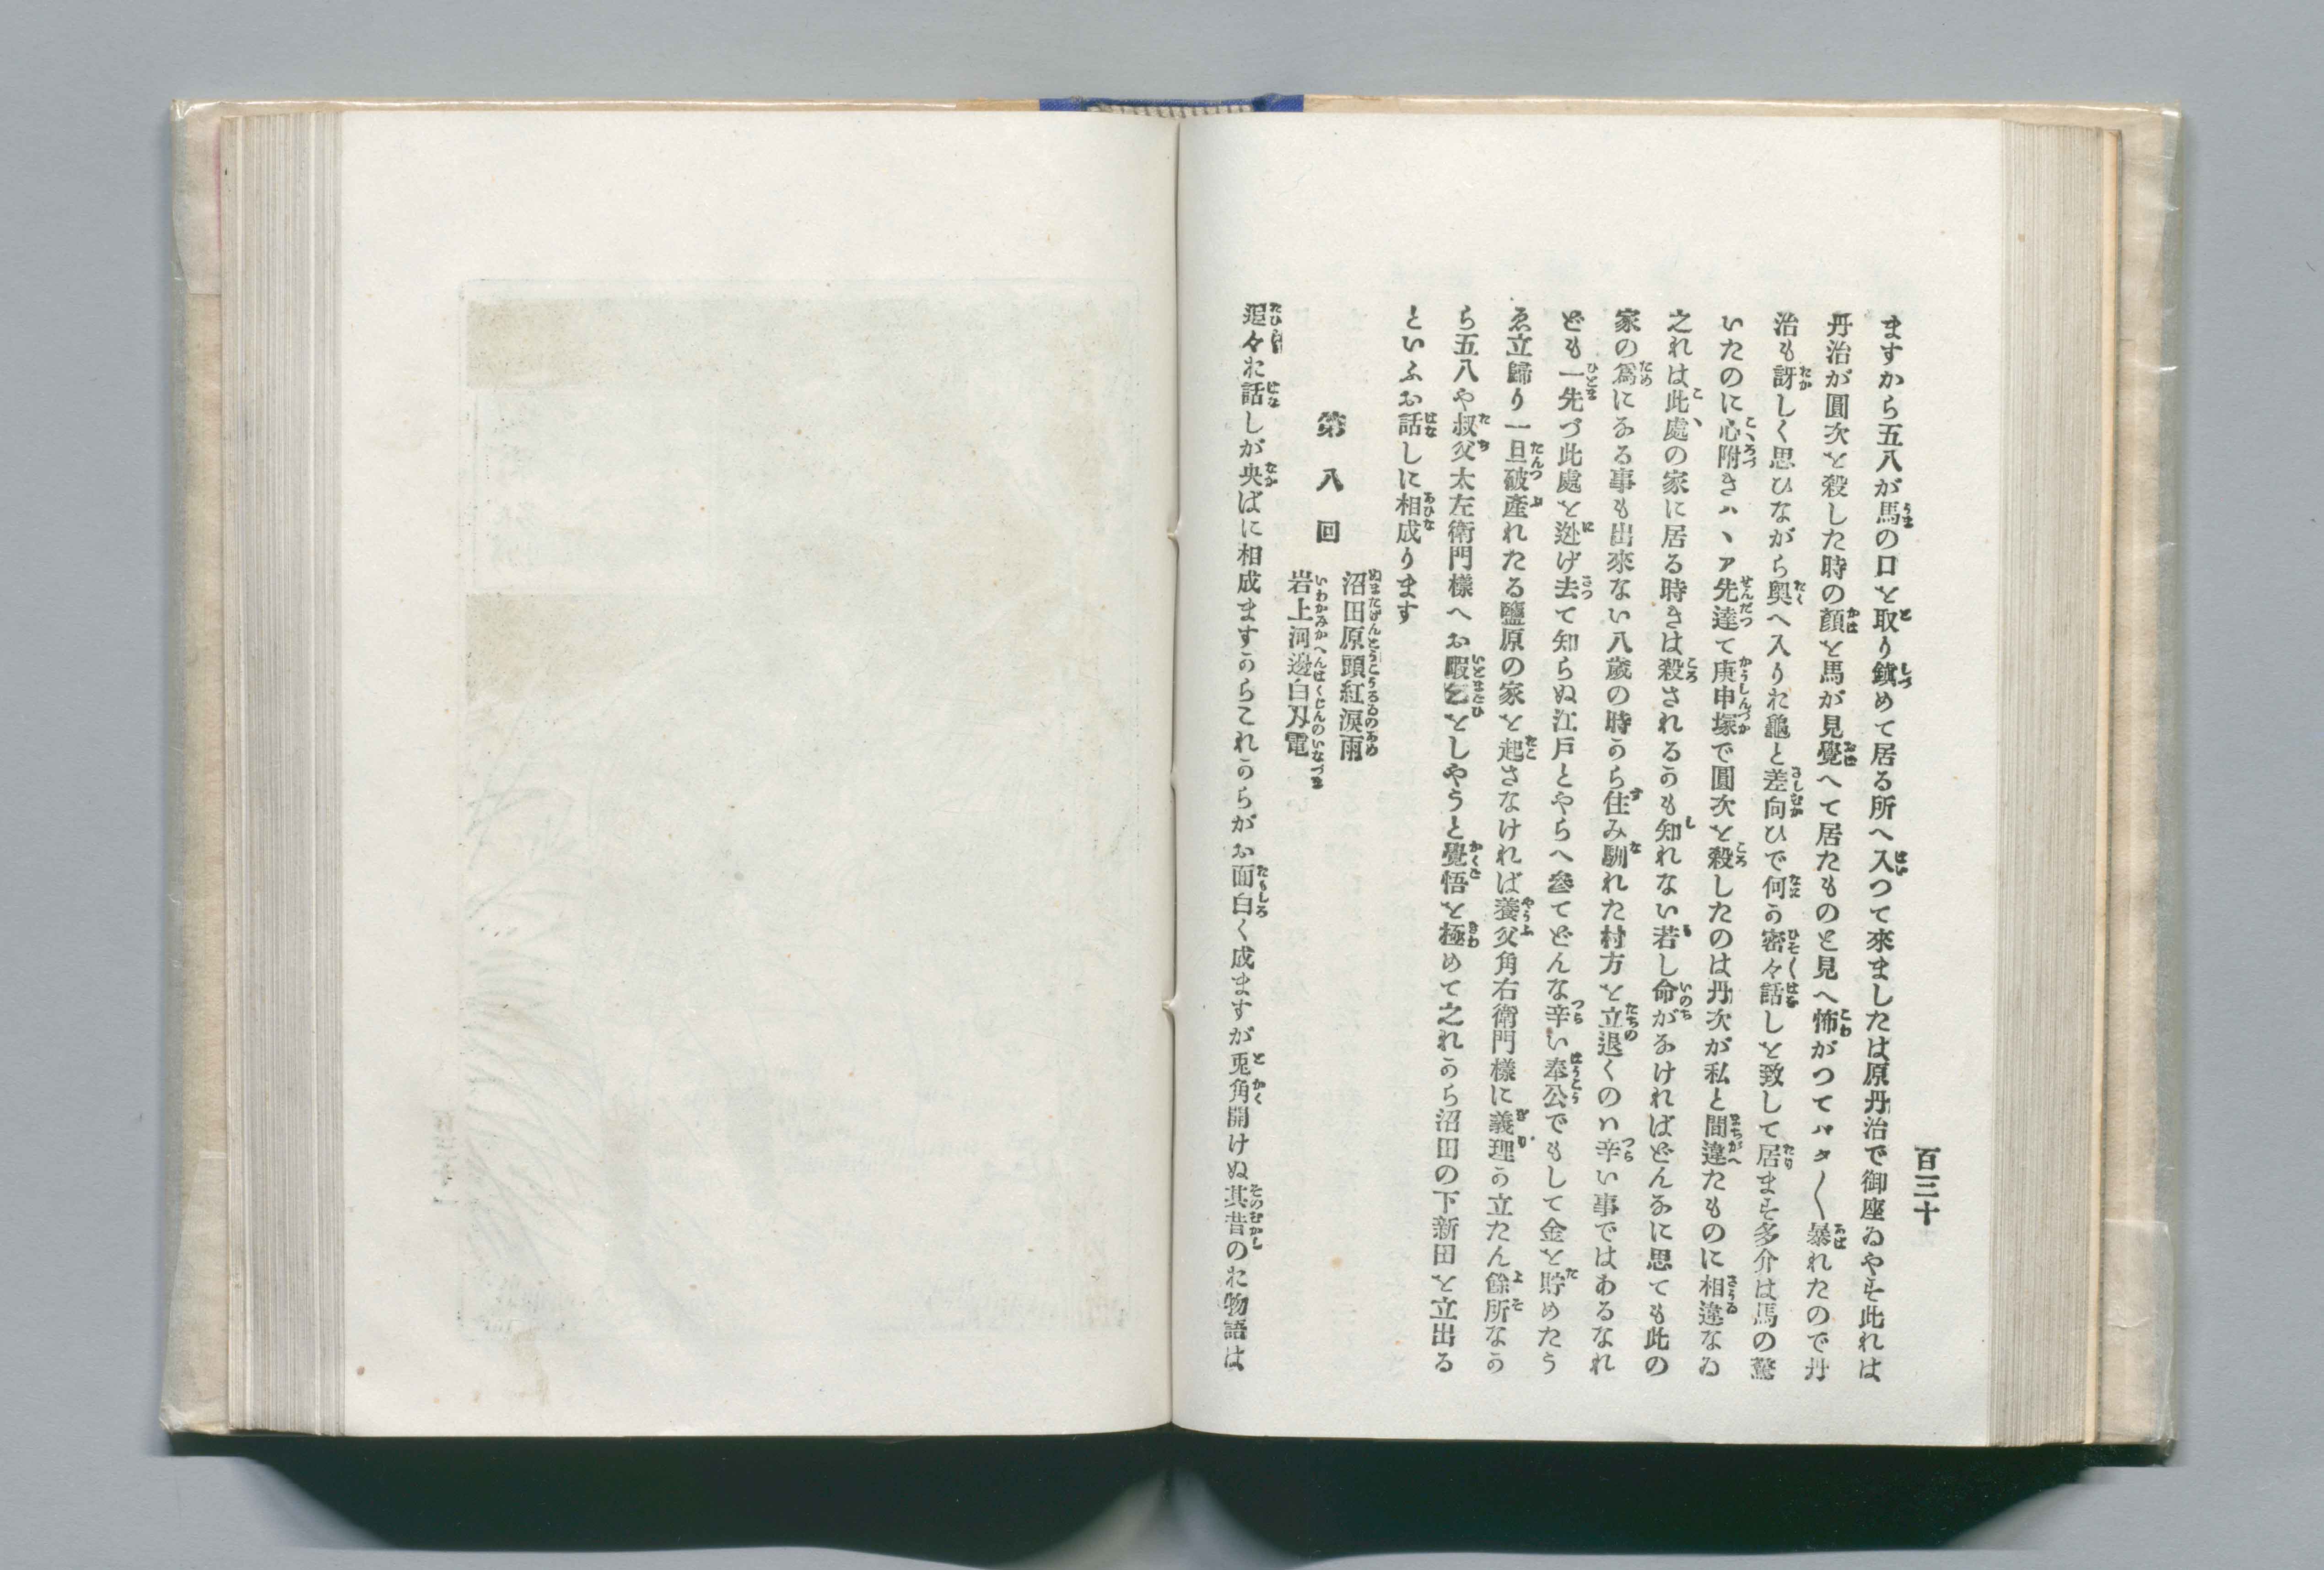 百三十
ますから五八が馬の口を取り鎮めて居る所へ入つて來ましたは原丹治で御座ゐやす此れは
丹治が圓次を殺した時の顔を馬が見覺へて居たものと見へ怖がつてハタ〳〵暴れたので丹
治も訝しく思ひながら奥へ入りお龜と差向ひで何か密々話しを致して居ます多介は馬の驚
いたのに心附きハヽア先達て庚申塚で圓次を殺したのは丹次が私と間違たものに相違なゐ
之れは此處の家に居る時きは殺されるかも知れない若し命がなければどんなに思ても此の
家の爲になる事も出來ない八歲の時から住み馴れた村方を立退くのハ辛い事ではあるなれ
ども一先づ此處を迯げ去て知らぬ江戸とやらへ參てどんな辛い奉公でもして金を貯めたう
ゑ立歸り一旦破產れたる鹽原の家を起さなければ養父角右衞門樣に義理か立たん餘所なか
ら五八や叔父太左衞門樣へお暇乞をしやうと覺悟を極めて之れから沼田の下新田を立出る
といふお話しに相成ります
第八回
沼田原頭紅淚雨
岩上河邊白刄電
追々お話しが央ばに相成ますからこれからがお面白く成ますが兎角開けぬ其昔のお物語は